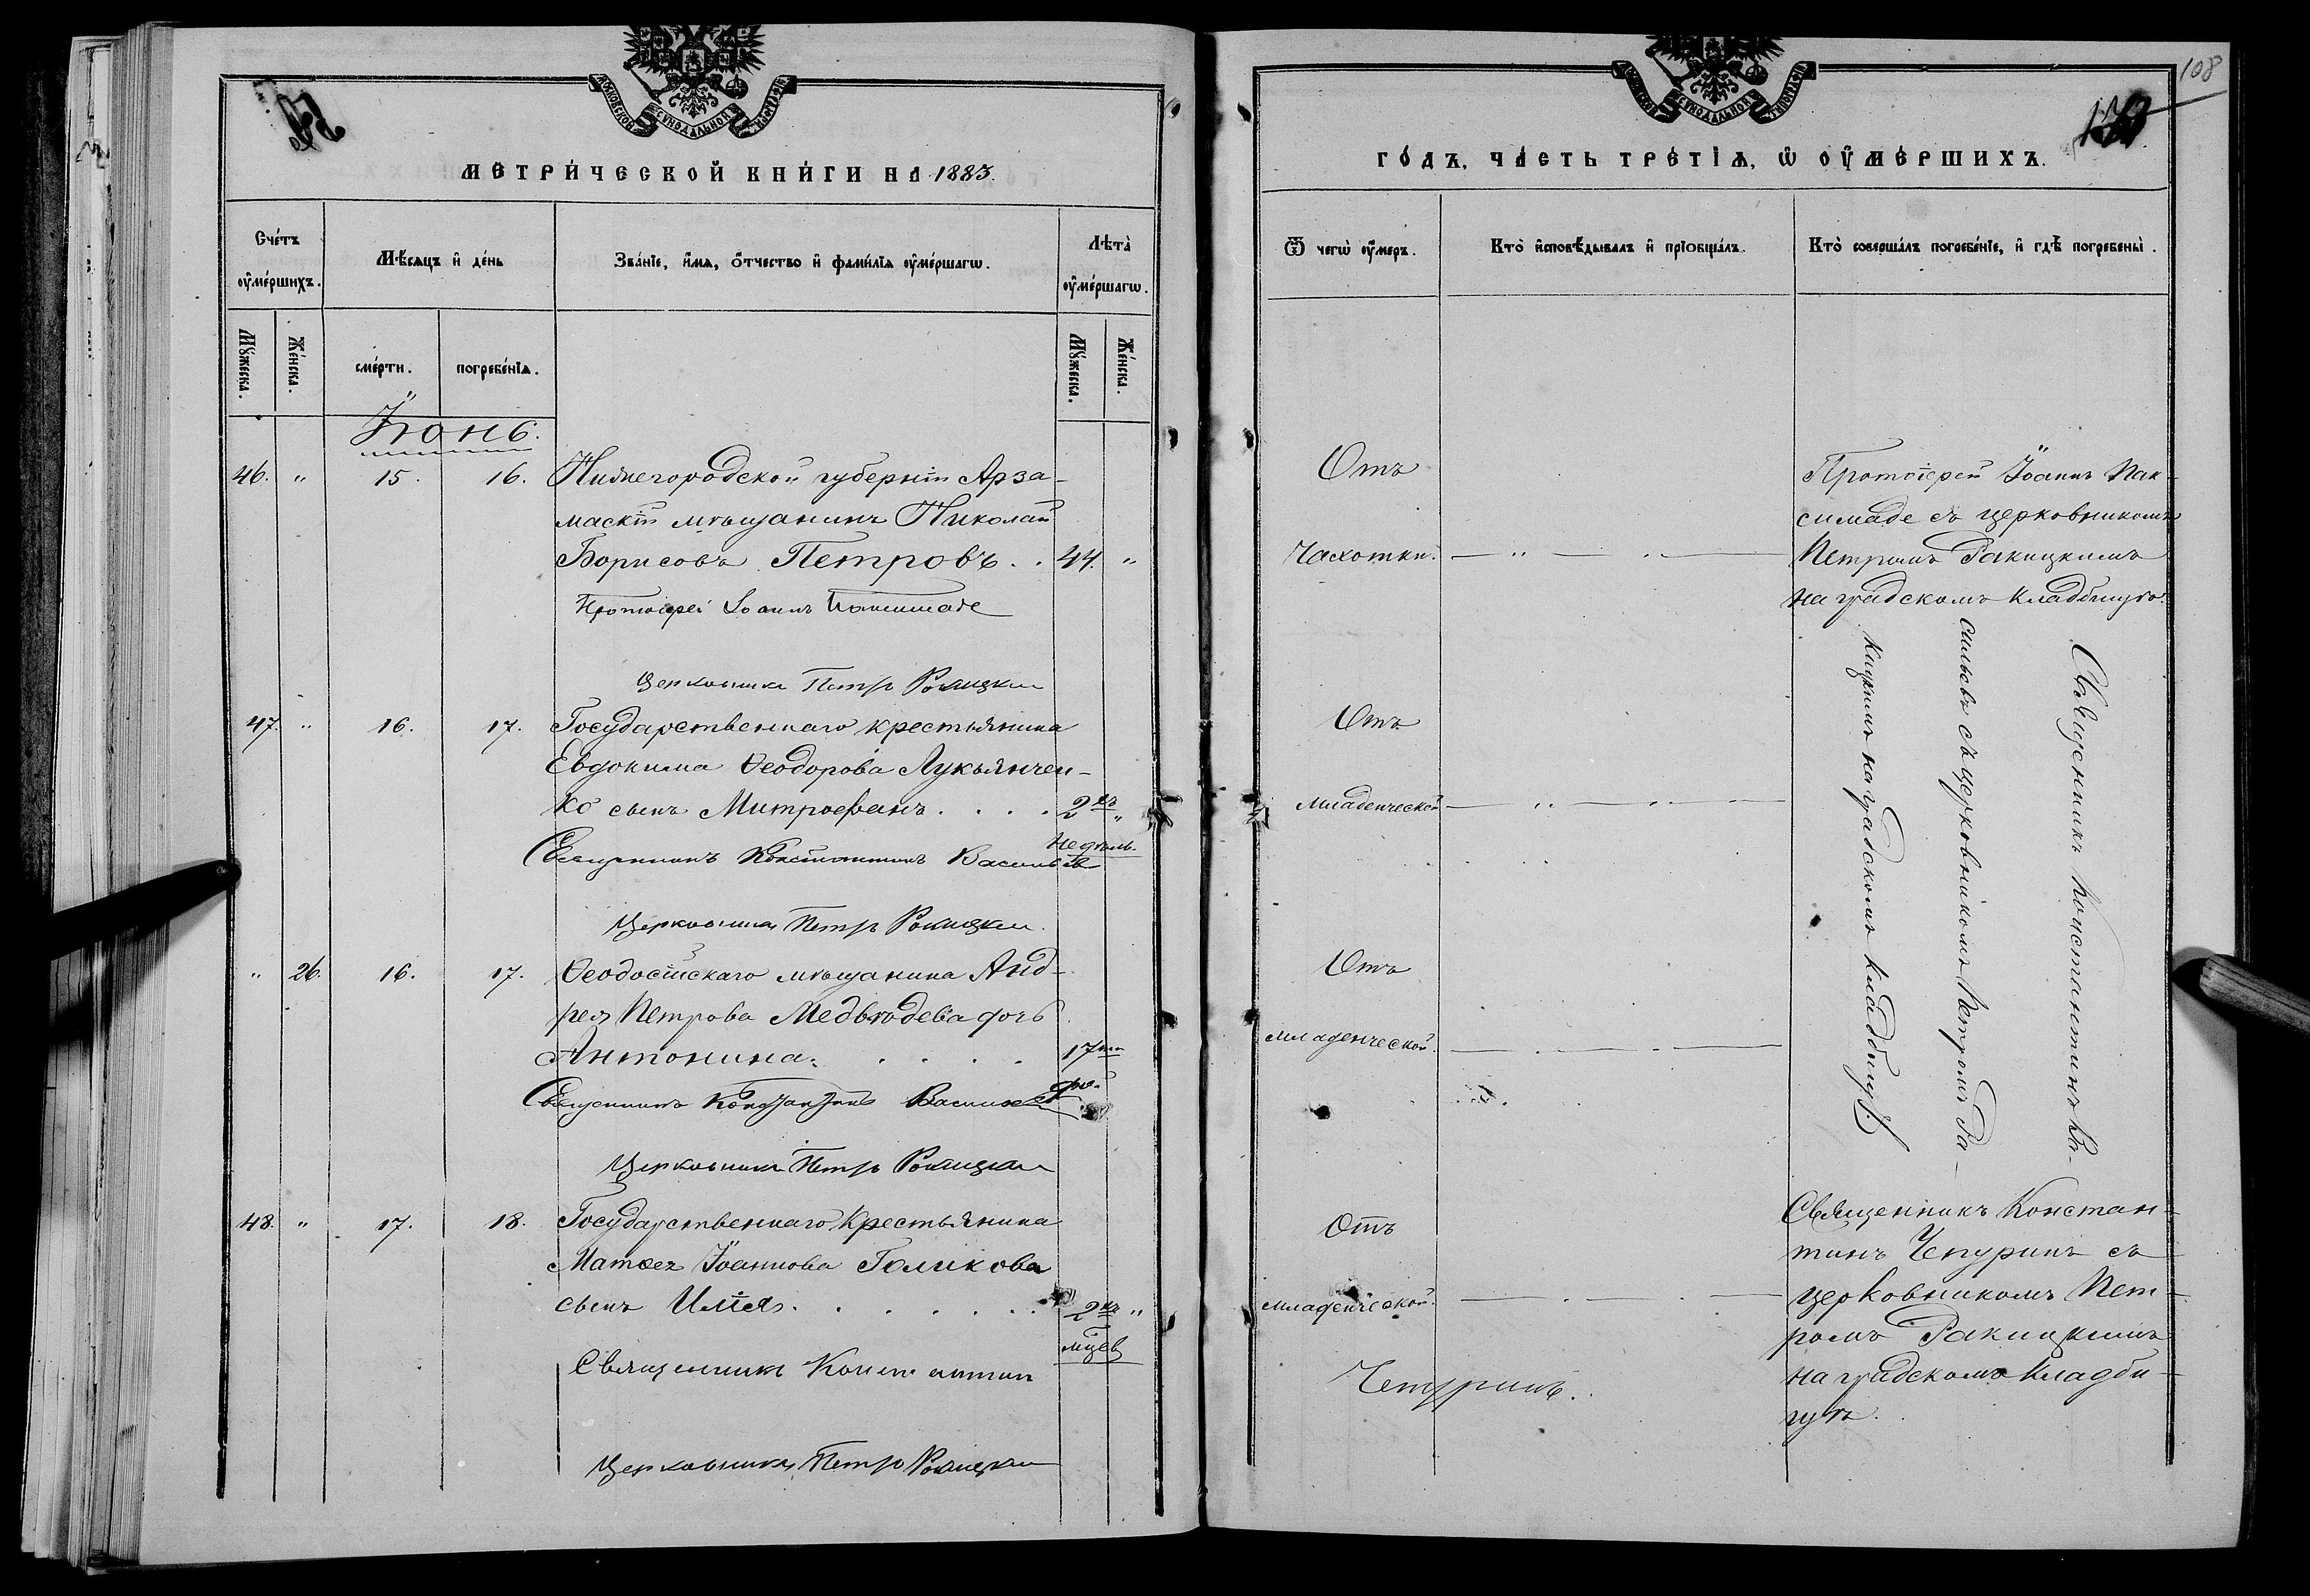 МОСКОВСКОЙ СѴНОДАЛЬНОЙ ТИПОГРАФІИ
МЕТРИ́ЧЕСКОЙ КНИ́ГИ НА 1883.
Сче́тъ ᲂу҆ме́ршихъ.
Мѣ́сяцъ и҆ де́нь
Зва́нїе, и҆́мѧ, ѻ҆́тчество и҆ фами́лїѧ ᲂу҆ме́ршагѡ.
Лѣта̀ ᲂу҆ме́ршагѡ.
Мꙋ́жеска.
Же́нска.
сме́рти.
погребе́нїѧ.
Мꙋ́жеска.
Же́нска.
Іюнь.
46. " 15. 16. Нижегородской губерніи Арза-
маскій мѣщанинъ Николай
Борисовъ Петровъ . . 44. "
Протоіерей Іоаннъ Паксимаде
Церковникъ Петръ Ракицкій
47. " 16. 17. Государственнаго крестьянина
Евдокима Ѳеодорова Лукьянчен-
ко сынъ Митрофанъ . . . . 2хъ "
недѣль.
Священникъ Константинъ Васильевъ
Церковникъ Петръ Ракицкій
" 26. 16. 17. Ѳеодосійскаго мѣщанина Анд-
рея Петрова Медвѣдева дочь
Антонина. . . . . 17ти
дн.
Священникъ Константинъ Васильевъ
Церковникъ Петръ Ракицкій
48. " 17. 18. Государственнаго крестьянина
Матѳея Іоаннова Голикова
сынъ Илія. . . . . . . 2хъ "
мцев
Священникъ Константин
Церковникъ Петръ Ракицкій
108
МОСКОВСКОЙ СѴНОДАЛЬНОЙ ТИПОГРАФІИ
ГО́ДЪ, ЧА́СТЬ ТРЕ́ТІѦ, Ѡ҆ ОУ҆МЕ́РШИХЪ.
Ѿ чегѡ̀ ᲂу҆́меръ.
Кто̀ и҆сповѣ́дывалъ и҆ прїобща́лъ.
Кто̀ соверша́лъ погребе́нїе, и҆ гдѣ̀ погребены̀.
Отъ
Чахотки.
Протоіерей Іоаннъ Пак-
симаде съ церковникомъ
Петромъ Ракицкимъ
на градскомъ кладбищѣ.
Отъ
младенческой
Отъ
младенческой.
Священникъ Константинъ Ва-
сильевъ съ церковникомъ Петромъ Ра-
кицкимъ на градскомъ кладбищѣ.
Отъ
младенческой.
Чепуринъ.
Священникъ Констан-
тинъ Чепуринъ съ
церковникомъ Пет-
ромъ Ракицкимъ
на градскомъ кладби-
щѣ.